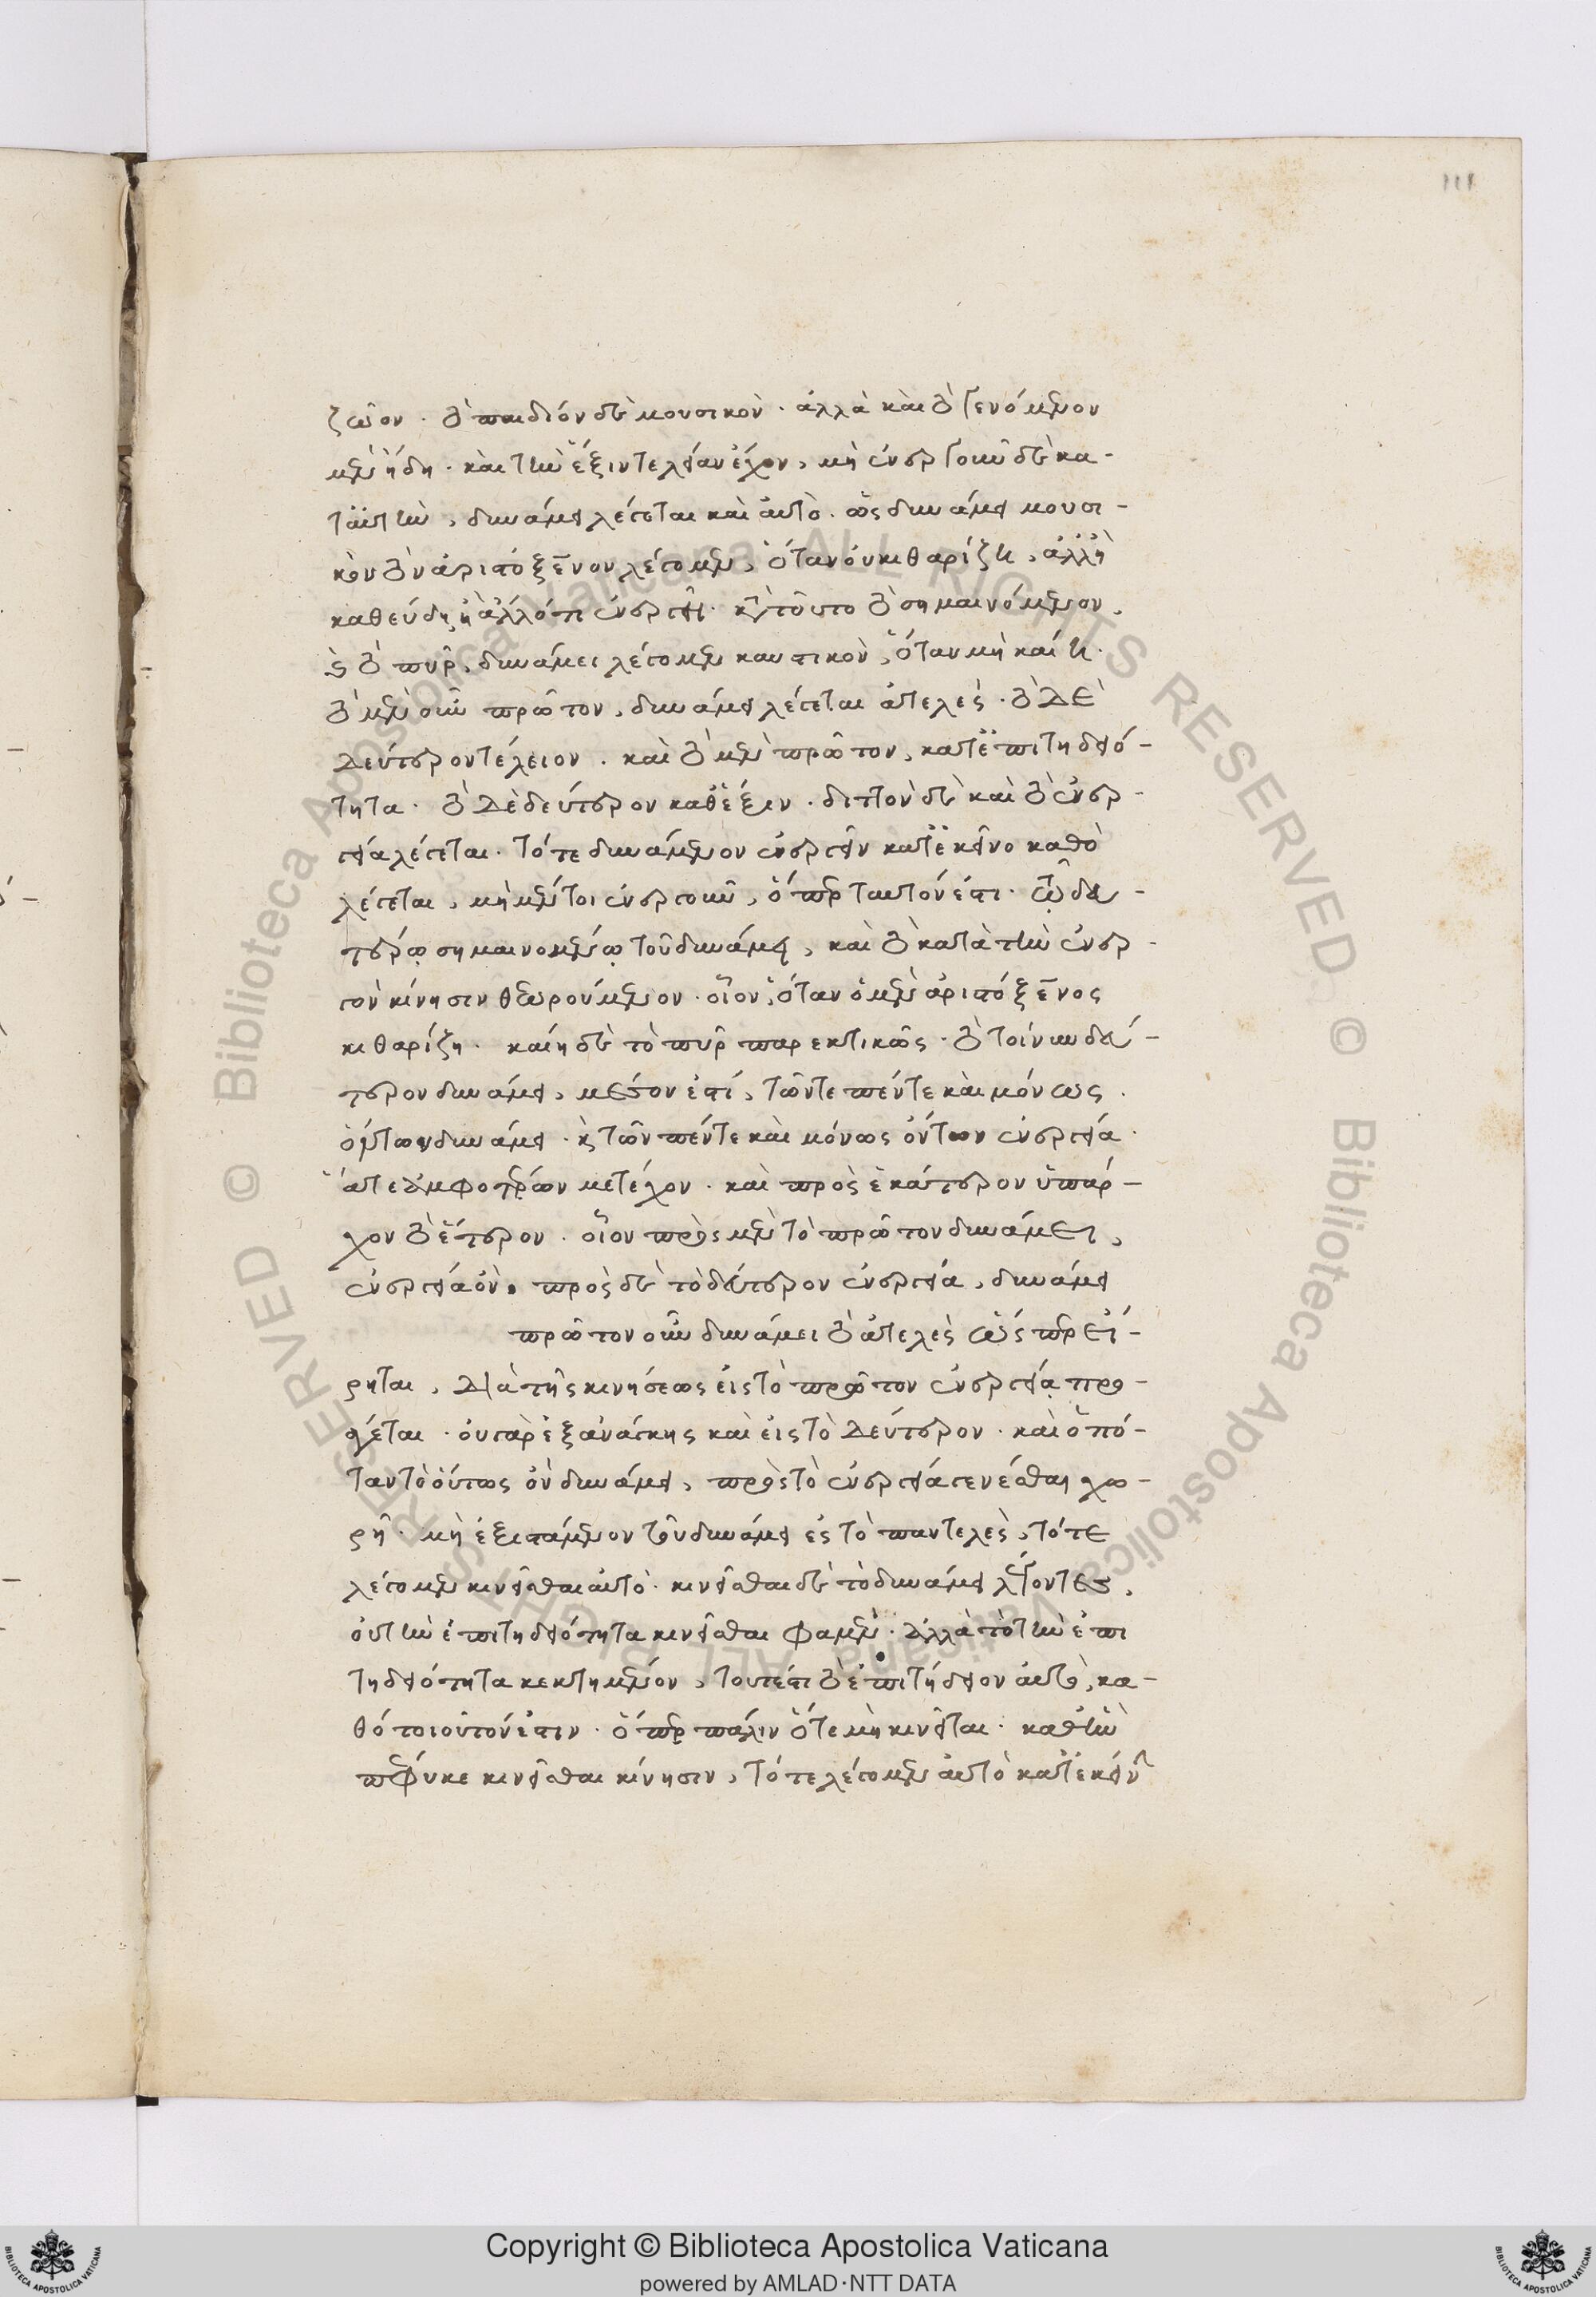 111
ζῶον. τὸ παιδίον δὲ μουσικόν. ἀλλὰ καὶ τὸ γενόμενον
μὲν ἤδη. καὶ τὴν ἕξιν τελείαν ἔχον, μὴ ἐνεργοῦν δὲ κα-
τ' αὐτὴν, δυνάμει λέγεται καὶ αὐτό. ὡς δυνάμει μουσι-
κὸν τὸν ἀριστόξενον λέγομεν, ὅταν οὐ κιθαρίζῃ, ἀλλ' ἢ
καθεύδῃ ἢ ἀλλό τι ἐνεργῇ. τοῦτο τὸ σημαινόμενον,
καὶ τὸ πῦρ, δυνάμει λέγομεν καυστικὸν, ὅταν μὴ καίῃ.
τὸ μὲν οὖν πρῶτον, δυνάμει λέγεται ἀτελές. τὸ δὲ
δεύτερον τέλειον. καὶ τὸ μὲν πρῶτον, κατ' ἐπιτηδειό-
τητα. τὸ δὲ δεύτερον καθ' ἕξιν. διττὸν δὲ καὶ τὸ ἐνερ-
γείᾳ λέγεται. τό τε δυνάμενον ἐνεργεῖν κατ' ἐκεῖνο καθὸ
λέγεται, μὴ μέντοι ἐνεργοῦν, ὅπερ ταυτόν ἐστι. τῷ δευ-
τέρῳ σημαινομένῳ τοῦ δυνάμει, καὶ τὸ κατὰ τὴν ἐνερ-
γὸν κίνησιν θεωρούμενον. οἷον, ὅταν ὁ μὲν ἀριστόξενος
κιθαρίζῃ. καίῃ δὲ τὸ πῦρ παρεκτικῶς. τὸ τοίνυν δεύ-
τερον δυνάμει, μέσον ἐστί, τῶν τε πέντε καὶ μόνως.
ὄντων δυνάμει. καὶ τῶν πέντε καὶ μόνως ὄντων ἐνεργείᾳ.
ἅτε ἀμφοτέρων μετέχον. καὶ πρὸς ἑκάτερον ὑπάρ-
χον τὸ ἕτερον. οἷον πρὸς μὲν τὸ πρῶτον δυνάμει,
ἐνεργείᾳ ὂν. πρὸς δὲ τὸ δεύτερον ἐνεργείᾳ, δυνάμει
πρῶτον οὖν δυνάμει τὸ ἀτελὲς ὥσπερ εἴ-
ρηται, διὰ τῆς κινήσεως εἰς τὸ πρῶτον ἐνεργείᾳ προ-
έρχεται. οὐ γὰρ ἐξ ἀνάγκης καὶ εἰς τὸ δεύτερον. καὶ ὁπό-
ταν τὸ οὕτως ὂν δυνάμει, πρὸς τὸ ἐνεργείᾳ γενέσθαι χω-
ρῇ. μὴ ἐξιστάμενον τοῦ δυνάμει ἐς τὸ παντελὲς, τότε
λέγομεν κινεῖσθαι αὐτό. κινεῖσθαι δὲ τὸ δυνάμει λέγοντες,
οὐ τὴν ἐπιτηδειότητα κινεῖσθαι φαμὲν. ἀλλὰ τὸ τὴν ἐπι
τηδειότητα κεκτημένον, τουτέστι τὸ ἐπιτήδειον αὐτὸ, κα-
θό τοιοῦτόν ἐστιν. ὅπερ πάλιν ὅτε μὴ κινεῖται. καθ' ἣν
πέφυκε κινεῖσθαι κίνησιν, τότε λέγομεν αὐτὸ κατ' ἐκείνην
Copyright © Biblioteca Apostolica Vaticana
powered by AMLAD·NTT DATA